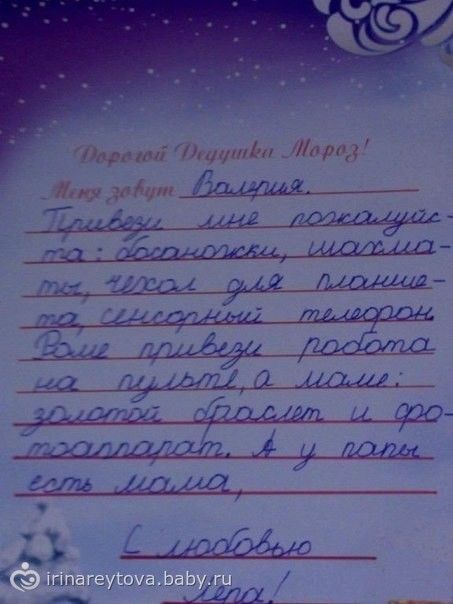 Дорогой Дедушка Мороз!
Меня зовут Валерия.
Привези мне пожалуйс-
та: босаножки, шахма-
ты, чехол для планше-
та, сенсорный телефон.
Роме привези робота
на пульте, а маме:
золотой браслет и фо-
тоаппарат. А у папы
есть мама,
С любовью
Лера!
irinareytova.baby.ru